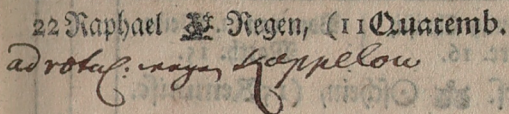 22 Raphael Regen, (11 Quatemb.
ad rotul. wegen Kappelow